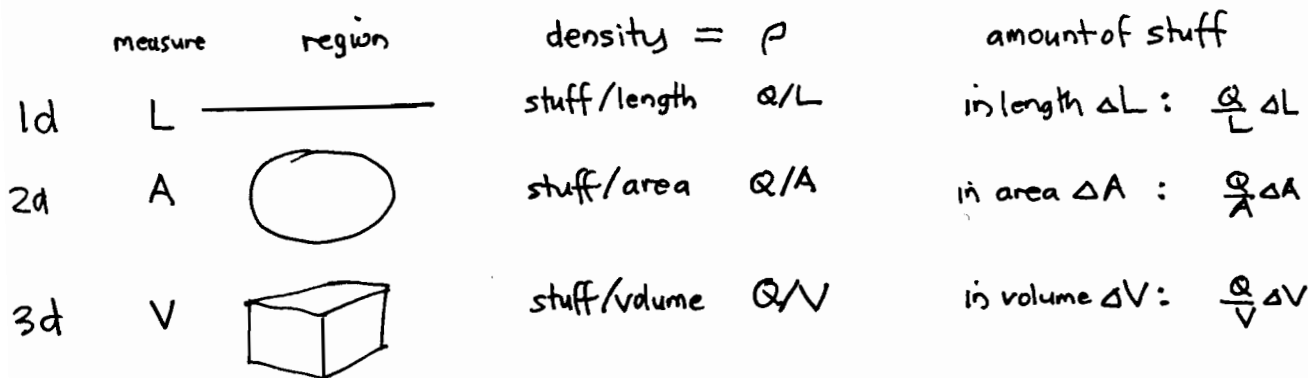 measure region density = ρ amount of stuff
1d L stuff/length Q/L in length ΔL : Q/L ΔL
2d A stuff/area Q/A in area ΔA : Q/A ΔA
3d V stuff/volume Q/V in volume ΔV : Q/V ΔV